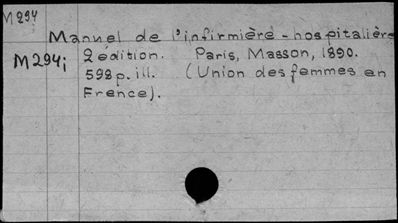 M294
Manuel de l'infirmière-hospitalière
M294i 2 édition. Paris, Masson, 1890.
598p. ill. (Union des femmes en
France).